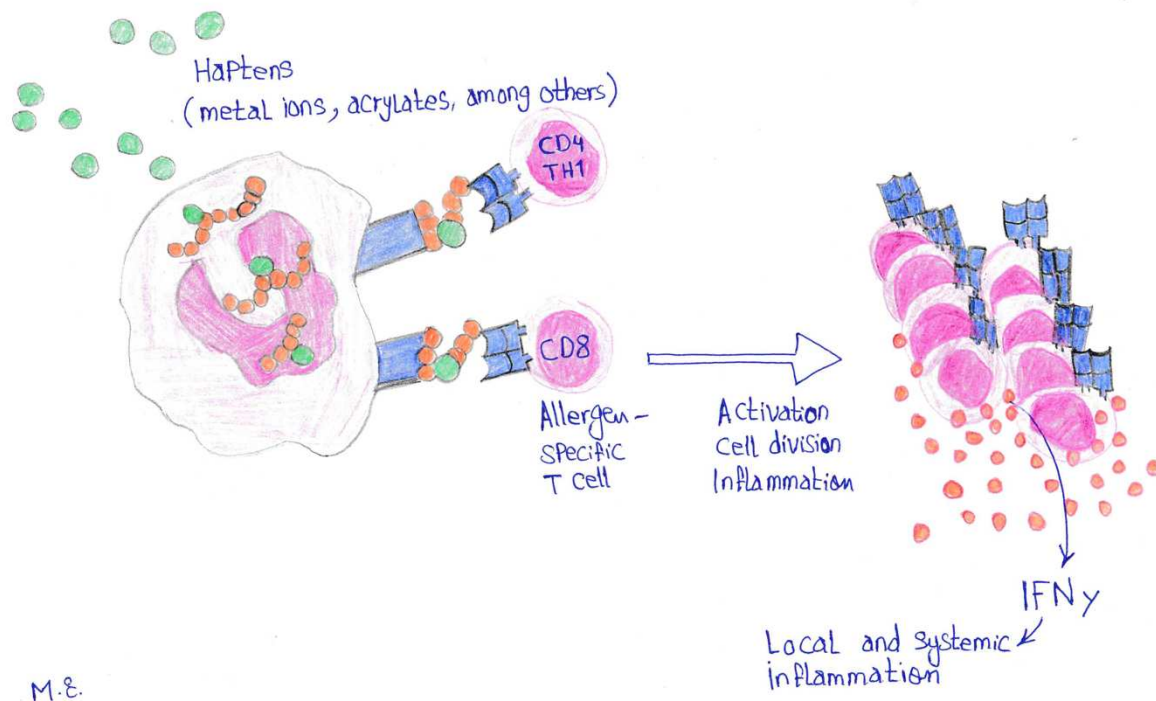 Haptens
(metal ions, acrylates, among others)
CD4
TH1
CD8
Allergen-
specific
T cell
Activation
Cell division
Inflammation
IFNγ
Local and systemic
inflammation
M.E.